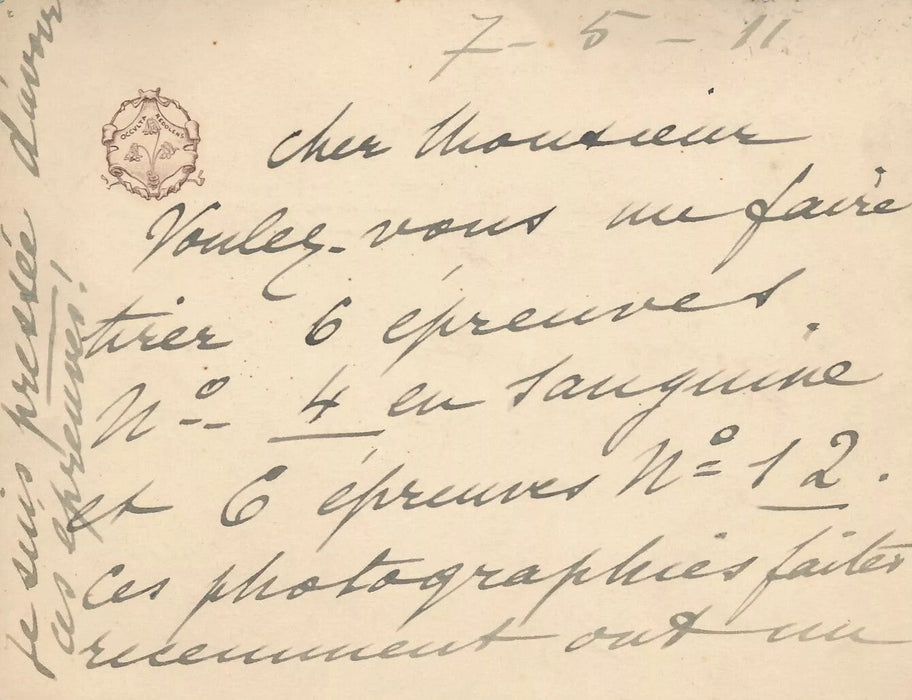 7 - 5 - 11
OCCULTA REDOLENS
Cher Monsieur
Voulez-vous me faire
tirer 6 épreuves
No 4 en sanguine
et 6 épreuves No 12.
Ces photographies faites
recemment ont un
Je suis pressée d'avoir
ces épreuves!